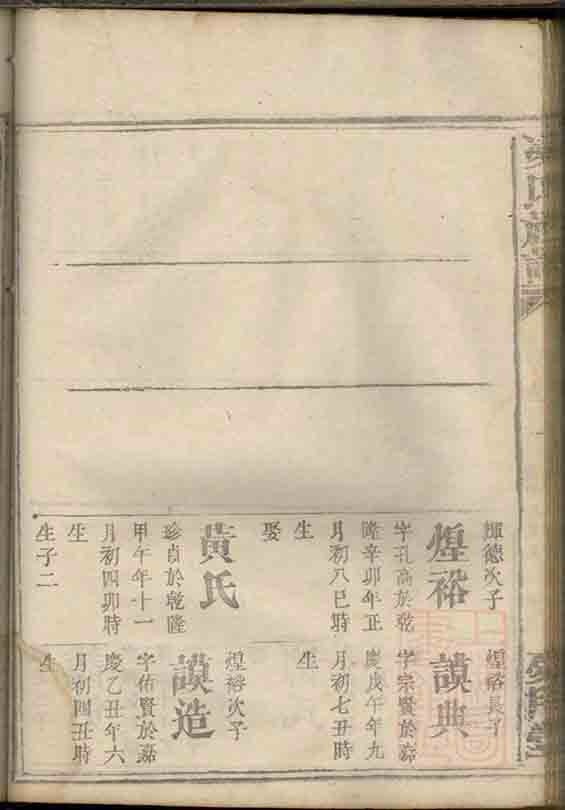 輝德次子
煌裕
字孔高於乾
隆辛卯年正
月初八巳時
生
娶
黃氏
珍貞於乾隆
甲午年十一
月初四卯時
生
生子二
煌裕長子
謨典
字宗賢於嘉
慶戊午年九
月初七丑時
生
煌裕次子
謨造
字佑賢於嘉
慶乙丑年六
月初四丑時
生